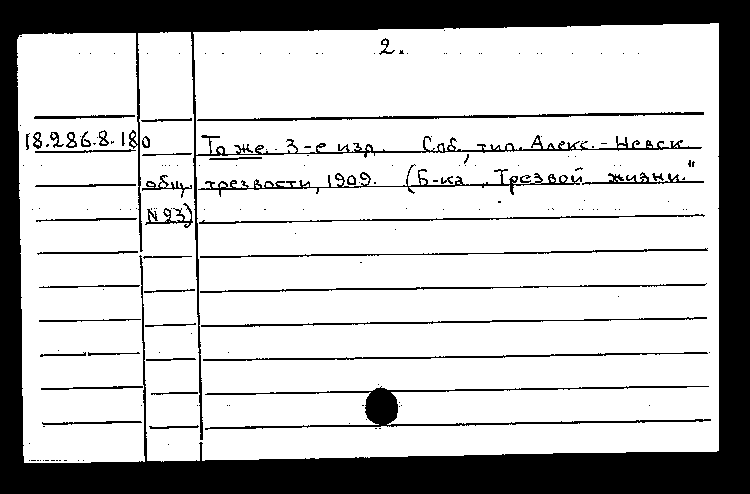 2.
18.286.8.180 То же. 3-е изд. Спб, тип. Алекс.-Невск
общ. трезвости, 1909. (Б-ка „Трезвой жизни."
N 23)